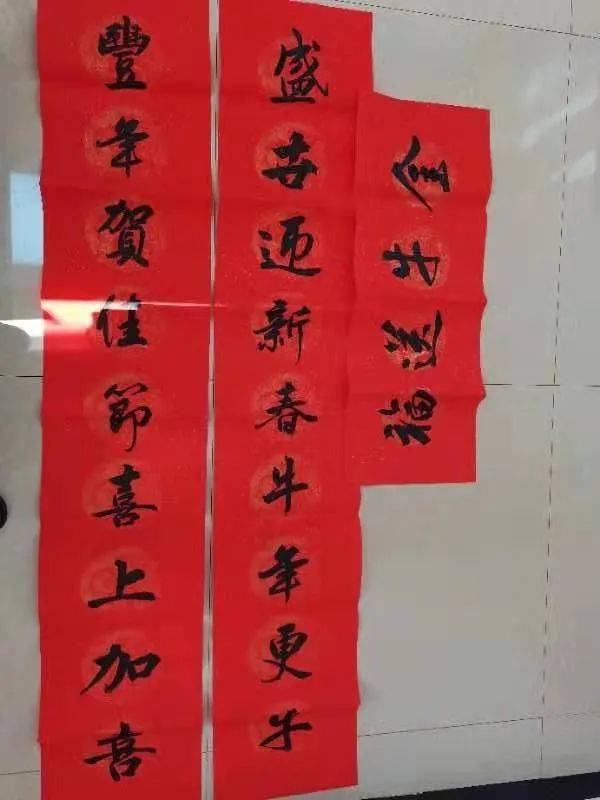 盛世迎新春牛年更牛
豐年賀佳節喜上加喜
金牛送福